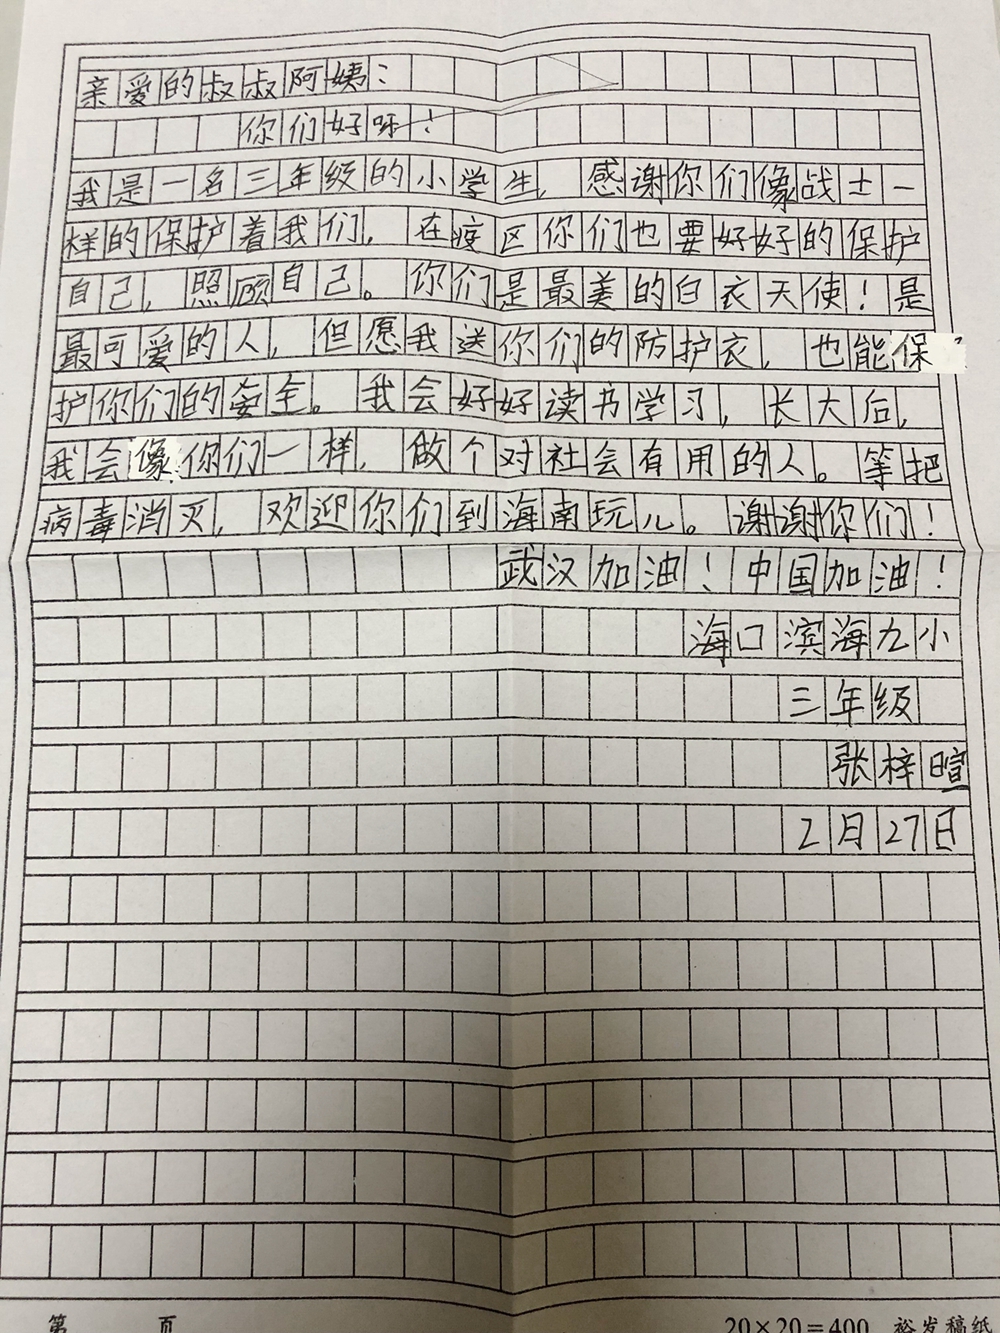 亲爱的叔叔阿姨：
你们好呀！
我是一名三年级的小学生，感谢你们像战士一
样的保护着我们，在疫区你们也要好好的保护
自己，照顾自己。你们是最美的白衣天使！是
最可爱的人，但愿我送你们的防护衣，也能保
护你们的安全。我会好好读书学习，长大后，
我会像你们一样，做个对社会有用的人。等把
病毒消灭，欢迎你们到海南玩儿。谢谢你们！
武汉加油！中国加油！
海口滨海九小
三年级
张梓暄
2月27日
第 页 20×20=400 裕发稿纸